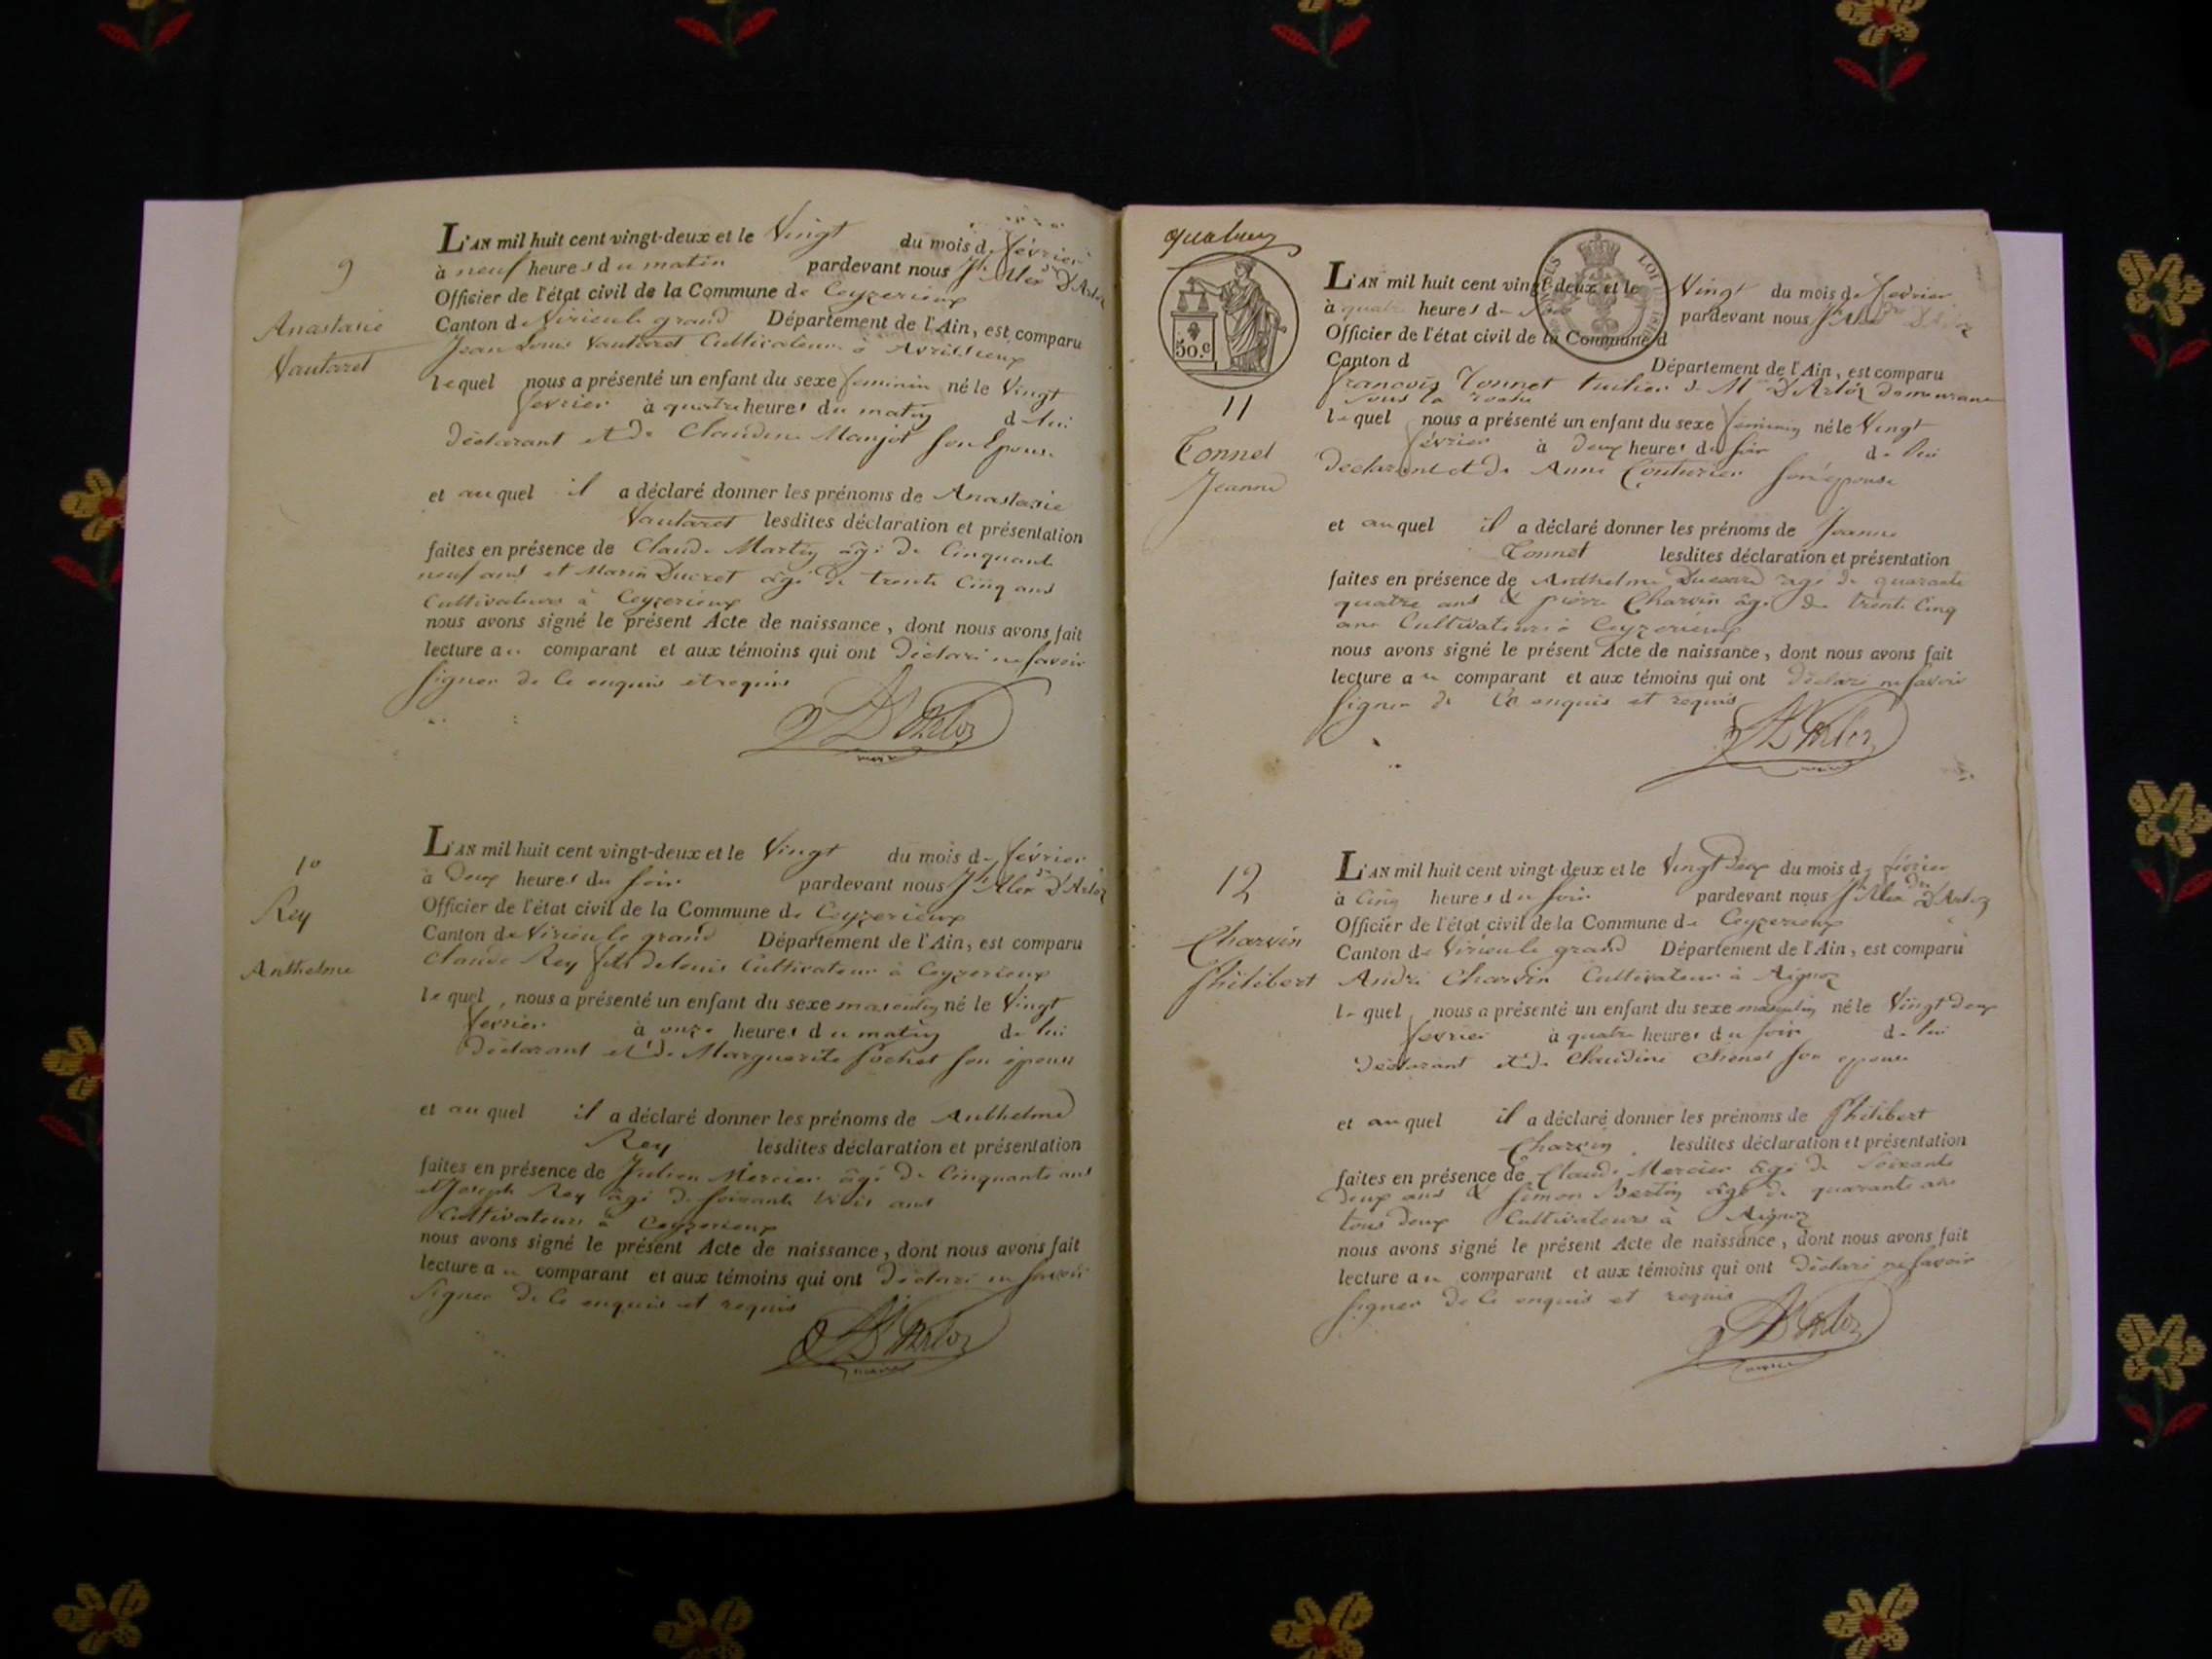 9
Anastasie
Vautaret
L'AN mil huit cent vingt-deux et le Vingt du mois de février
à neuf heures du matin pardevant nous Jh Alexdre D'Arloz
Officier de l'état civil de la Commune de Ceyzerieux
Canton de Virieu le grand Département de l'Ain, est comparu
Jean Louis Vautaret Cultivateur à Avrissieux
lequel nous a présenté un enfant du sexe feminin né le Vingt
fevrier à quatre heures du matin de lui
déclarant et de Claudine Manjot son Epouse
et auquel il a déclaré donner les prénoms de Anastasie
Vautaret lesdites déclaration et présentation
faites en présence de Claude Martin âgé de Cinquante
neuf ans et Marin Ducret âgé de trente Cinq ans
Cultivateurs à Ceyzerieux
nous avons signé le présent Acte de naissance, dont nous avons fait
lecture au comparant et aux témoins qui ont déclaré ne savoir
signer de ce enquis et requis
D'Arloz
maire
10
Rey
Anthelme
L'AN mil huit cent vingt-deux et le Vingt du mois de février
à Deux heures du soir pardevant nous Jh Alexdre D'Arloz
Officier de l'état civil de la Commune de Ceyzerieux
Canton de Virieu le grand Département de l'Ain, est comparu
Claude Rey fils de Louis Cultivateur à Ceyzerieux
lequel, nous a présenté un enfant du sexe masculin né le Vingt
février à onze heures du matin de lui
déclarant et de Marguerite Pochet son épouse
et auquel il a déclaré donner les prénoms de Anthelme
Rey lesdites déclaration et présentation
faites en présence de Julien Mercier âgé de Cinquante ans
et Joseph Rey âgé de soixante trois ans
Cultivateurs à Ceyzerieux
nous avons signé le présent Acte de naissance, dont nous avons fait
lecture au comparant et aux témoins qui ont déclaré ne savoir
signer de ce enquis et requis
D'Arloz
maire
50.c
LOUIS
1816
11
Tonnet
Jeanne
L'AN mil huit cent vingt-deux et le Vingt du mois de fevrier
à quatre heures du soir pardevant nous Jh Alexdre D'Arloz
Officier de l'état civil de la Commune d
Canton d Département de l'Ain, est comparu
francois Tonnet tuilier de Mr D'Arloz demeurant
sous la roche
lequel nous a présenté un enfant du sexe feminin né le Vingt
février à Deux heures du soir de lui
déclarant et de Anne Couturier son épouse
et auquel il a déclaré donner les prénoms de Jeanne
Tonnet lesdites déclaration et présentation
faites en présence de Anthelme Ducard âgé de quarante
quatre ans & pierre Charvin âgé de trente Cinq
ans Cultivateurs à Ceyzerieux
nous avons signé le présent Acte de naissance, dont nous avons fait
lecture au comparant et aux témoins qui ont déclaré ne savoir
signer de Ce enquis et requis
D'Arloz
maire
12
Charvin
Philibert
L'AN mil huit cent vingt-deux et le Vingt Deux du mois de février
à Cinq heures du soir pardevant nous Jh Alexdre D'Arloz
Officier de l'état civil de la Commune de Ceyzerieux
Canton de Virieu le grand Département de l'Ain, est comparu
André Charvin Cultivateur à Aignoz
lequel nous a présenté un enfant du sexe masculin né le Vingt deux
fevrier à quatre heures du soir de lui
déclarant et de Claudine son epouse
et auquel il a déclaré donner les prénoms de Philibert
Charvin lesdites déclaration et présentation
faites en présence de Claude Mercier âgé de Soixante
Deux ans & Simon Bertin âgé de quarante ans
tous deux Cultivateurs à Aignoz
nous avons signé le présent Acte de naissance, dont nous avons fait
lecture au comparant et aux témoins qui ont déclaré ne savoir
signer de Ce enquis et requis
D'Arloz
maire